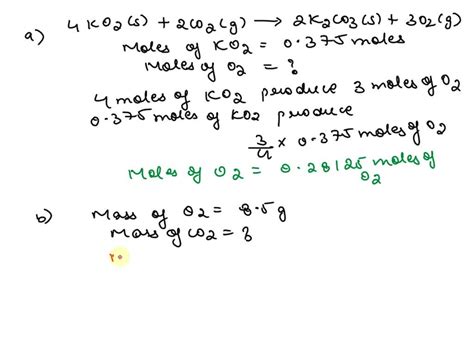 a) 4KO2(s) + 2CO2(g) → 2K2CO3(s) + 3O2(g)
Moles of KO2 = 0.375 moles
Moles of O2 = ?
4 moles of KO2 produce 3 moles of O2
0.375 moles of KO2 produce
3/4 x 0.375 moles of O2
Moles of O2 = 0.28125 moles of O2
b) Mass of O2 = 8.5g
Mass of CO2 = ?